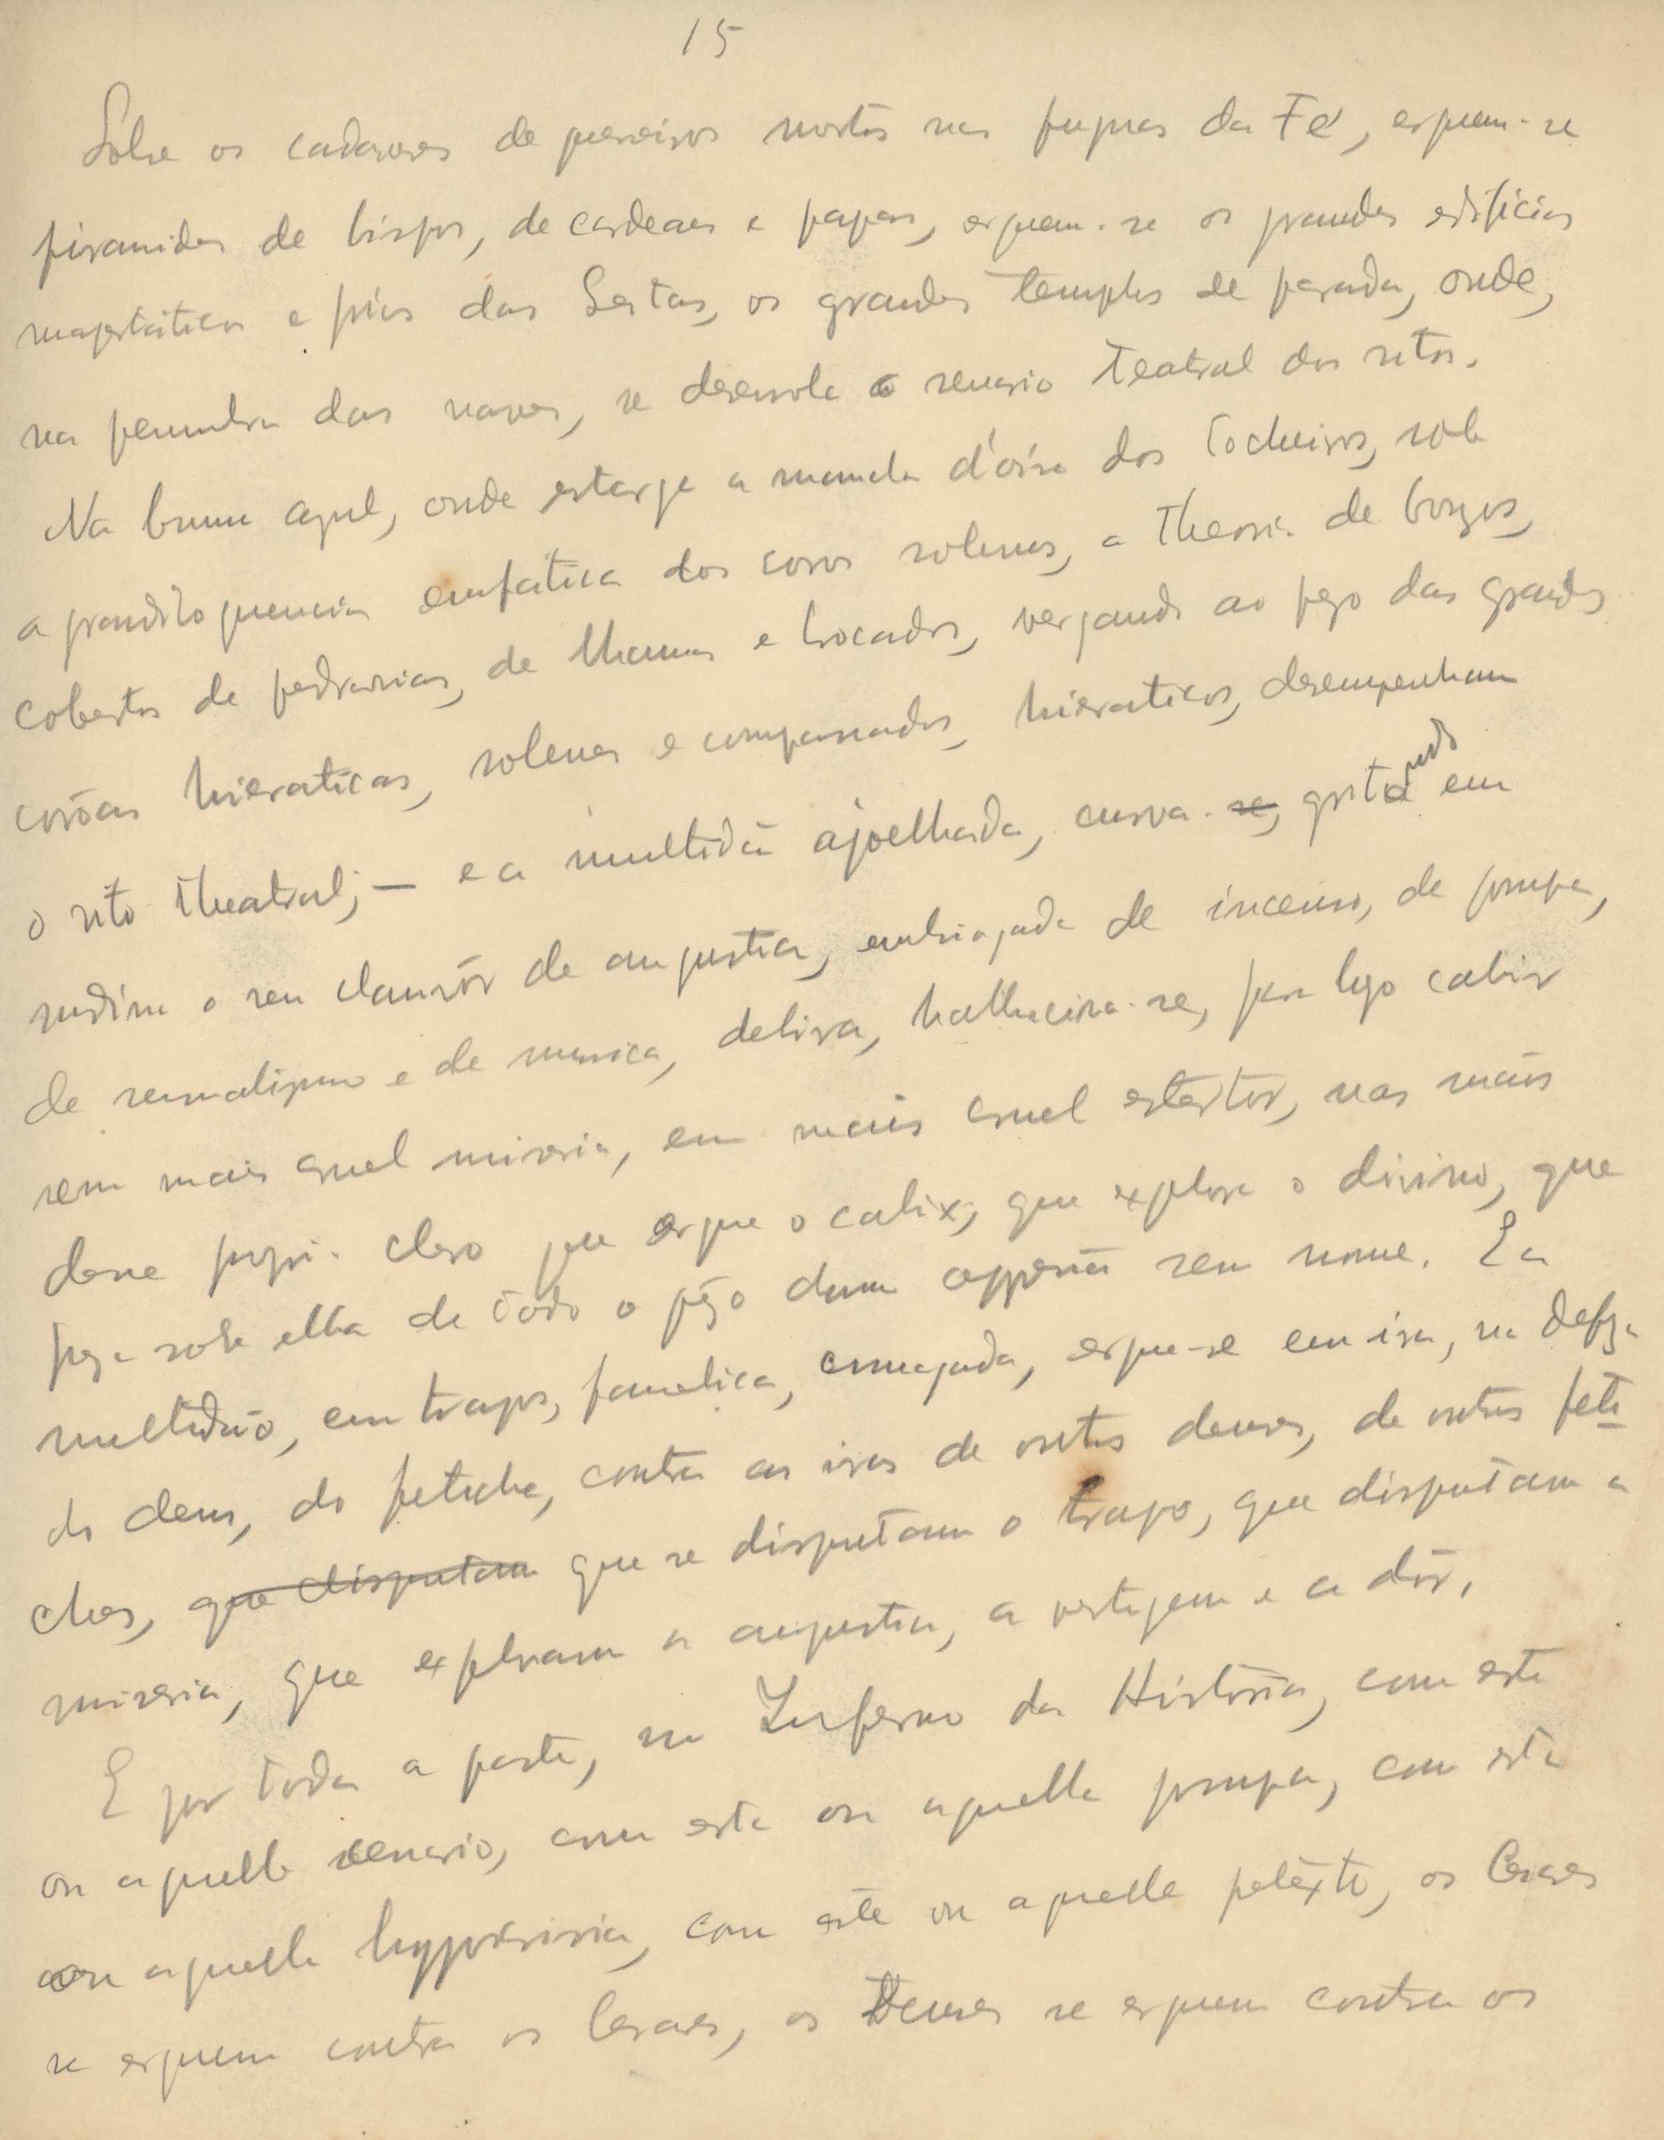 15
Sobre os cadaveres de guerreiros mortos nas pugnas da Fé, erguem-se
piramides de bispos, de cardeaes e papas, erguem-se os grandes edificios
magestaticos e pios das Seitas, os grandes templos de parada, onde,
na penumbra das naves, se desenrola o scenario teatral dos ritos.
Na bruma azul, onde estarge a mancha d'oiro dos tocheiros, sob
a grandiloquencia emfatica dos coros solenes, a theoria de bonzos,
cobertos de pedrarias, de lhamas e brocados, vergando ao pezo das grandes
corôas hieraticas, solenes e compassados, hieraticos, desempenham
o rito theatral; — e a multidão ajoelhada, curva-se, gritando em
surdina o seu clamôr de angustia, embriagada de incenso, de pompa,
de sensualismo e de musica, delira, hallucina-se, para logo cahir
sem mais cruel miseria, em mais cruel estertor, nas mãos
desse propri clero que ergue o calix, que explora o divino, que
peza sobre ella de todo o pêzo dum oppressão sem nome. E a
multidão, em trapos, famelica, esmagada, ergue-se em ira, na defeza
do deus, do fetiche, contra as iras de outros deuses, de outros feti
ches, que disputam que se disputam o trapo, que disputam a
miseria, que exploram a angustia, a vertigem e a dôr.
E por toda a parte, no Inferno da História, com este
ou aquelle scenario, com esta ou aquella pompa, com esta
ou aquella hyppocrisia, com este ou aquelle petêxto, os Cesares
se erguem contra os Cesares, os Deuses se erguem contra os